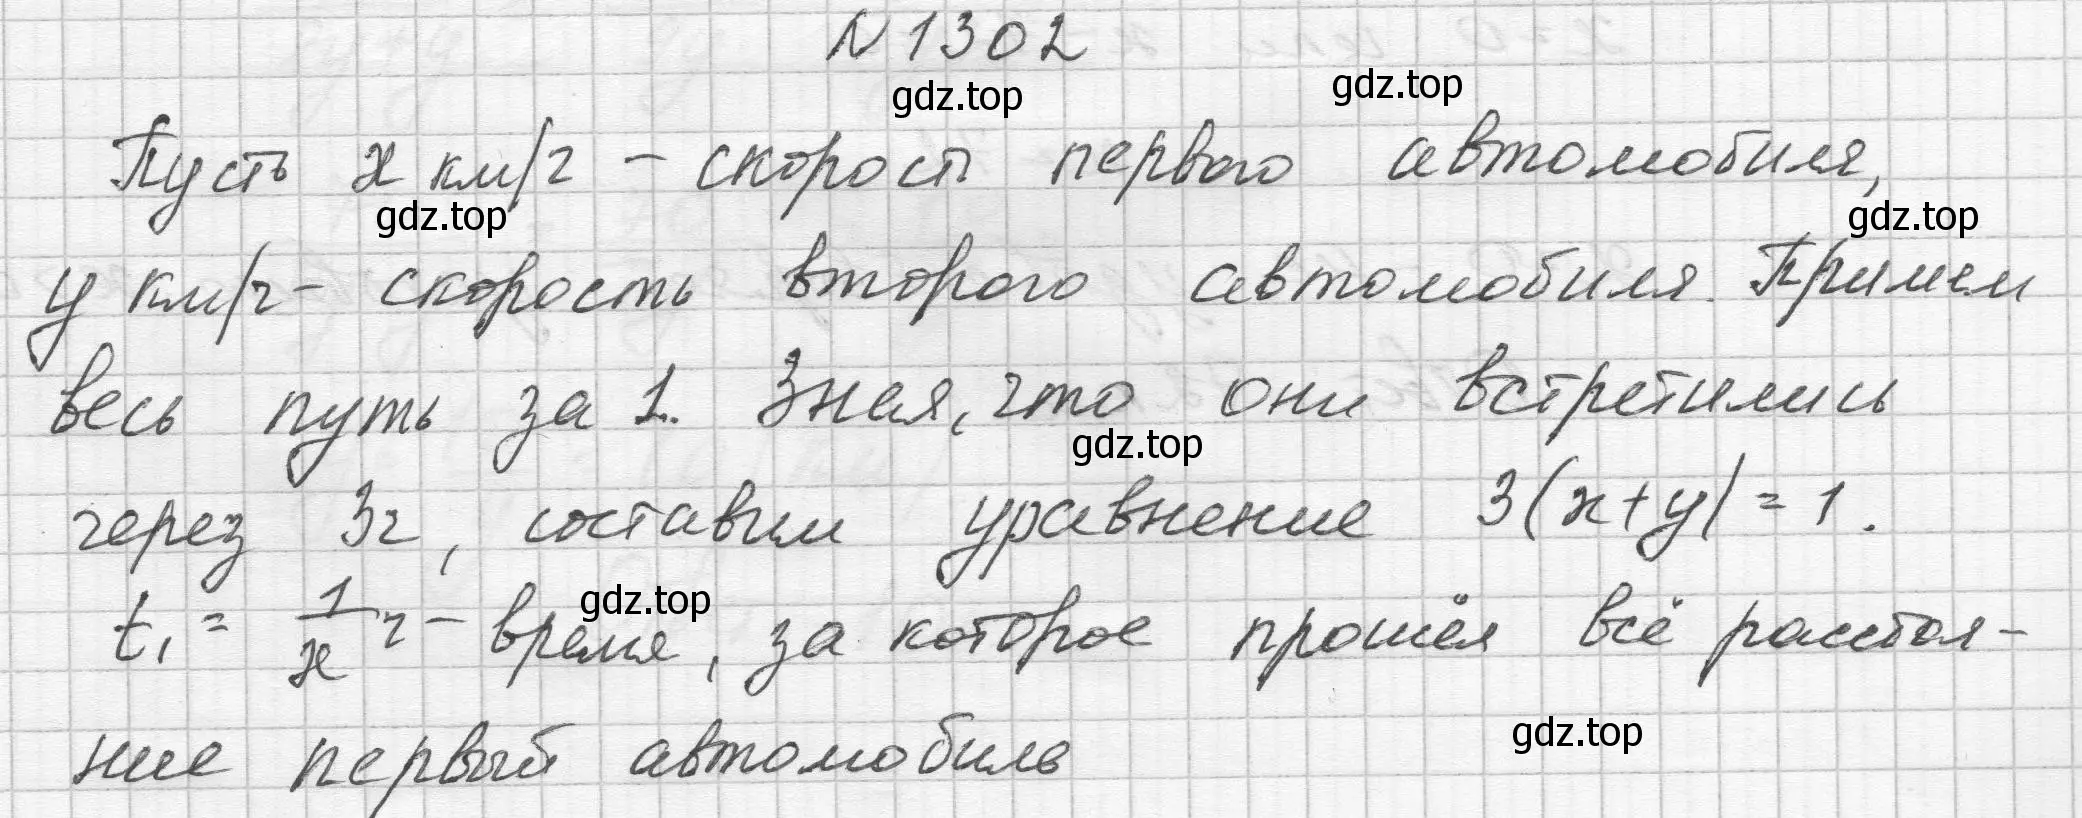 N 1302
gdz.top
gdz.top
Пусть x км/ч – скорость первого автомобиля,
gdz.top
gdz.top
y км/ч – скорость второго автомобиля. Примем
весь путь за 1. Зная, что они встретились
gdz.top
через 3ч, составим уравнение 3(x+y)=1.
gdz.top
t₁ = 1/x ч – время, за которое прошёл всё расстоя-
gdz.top
ние первый автомобиль